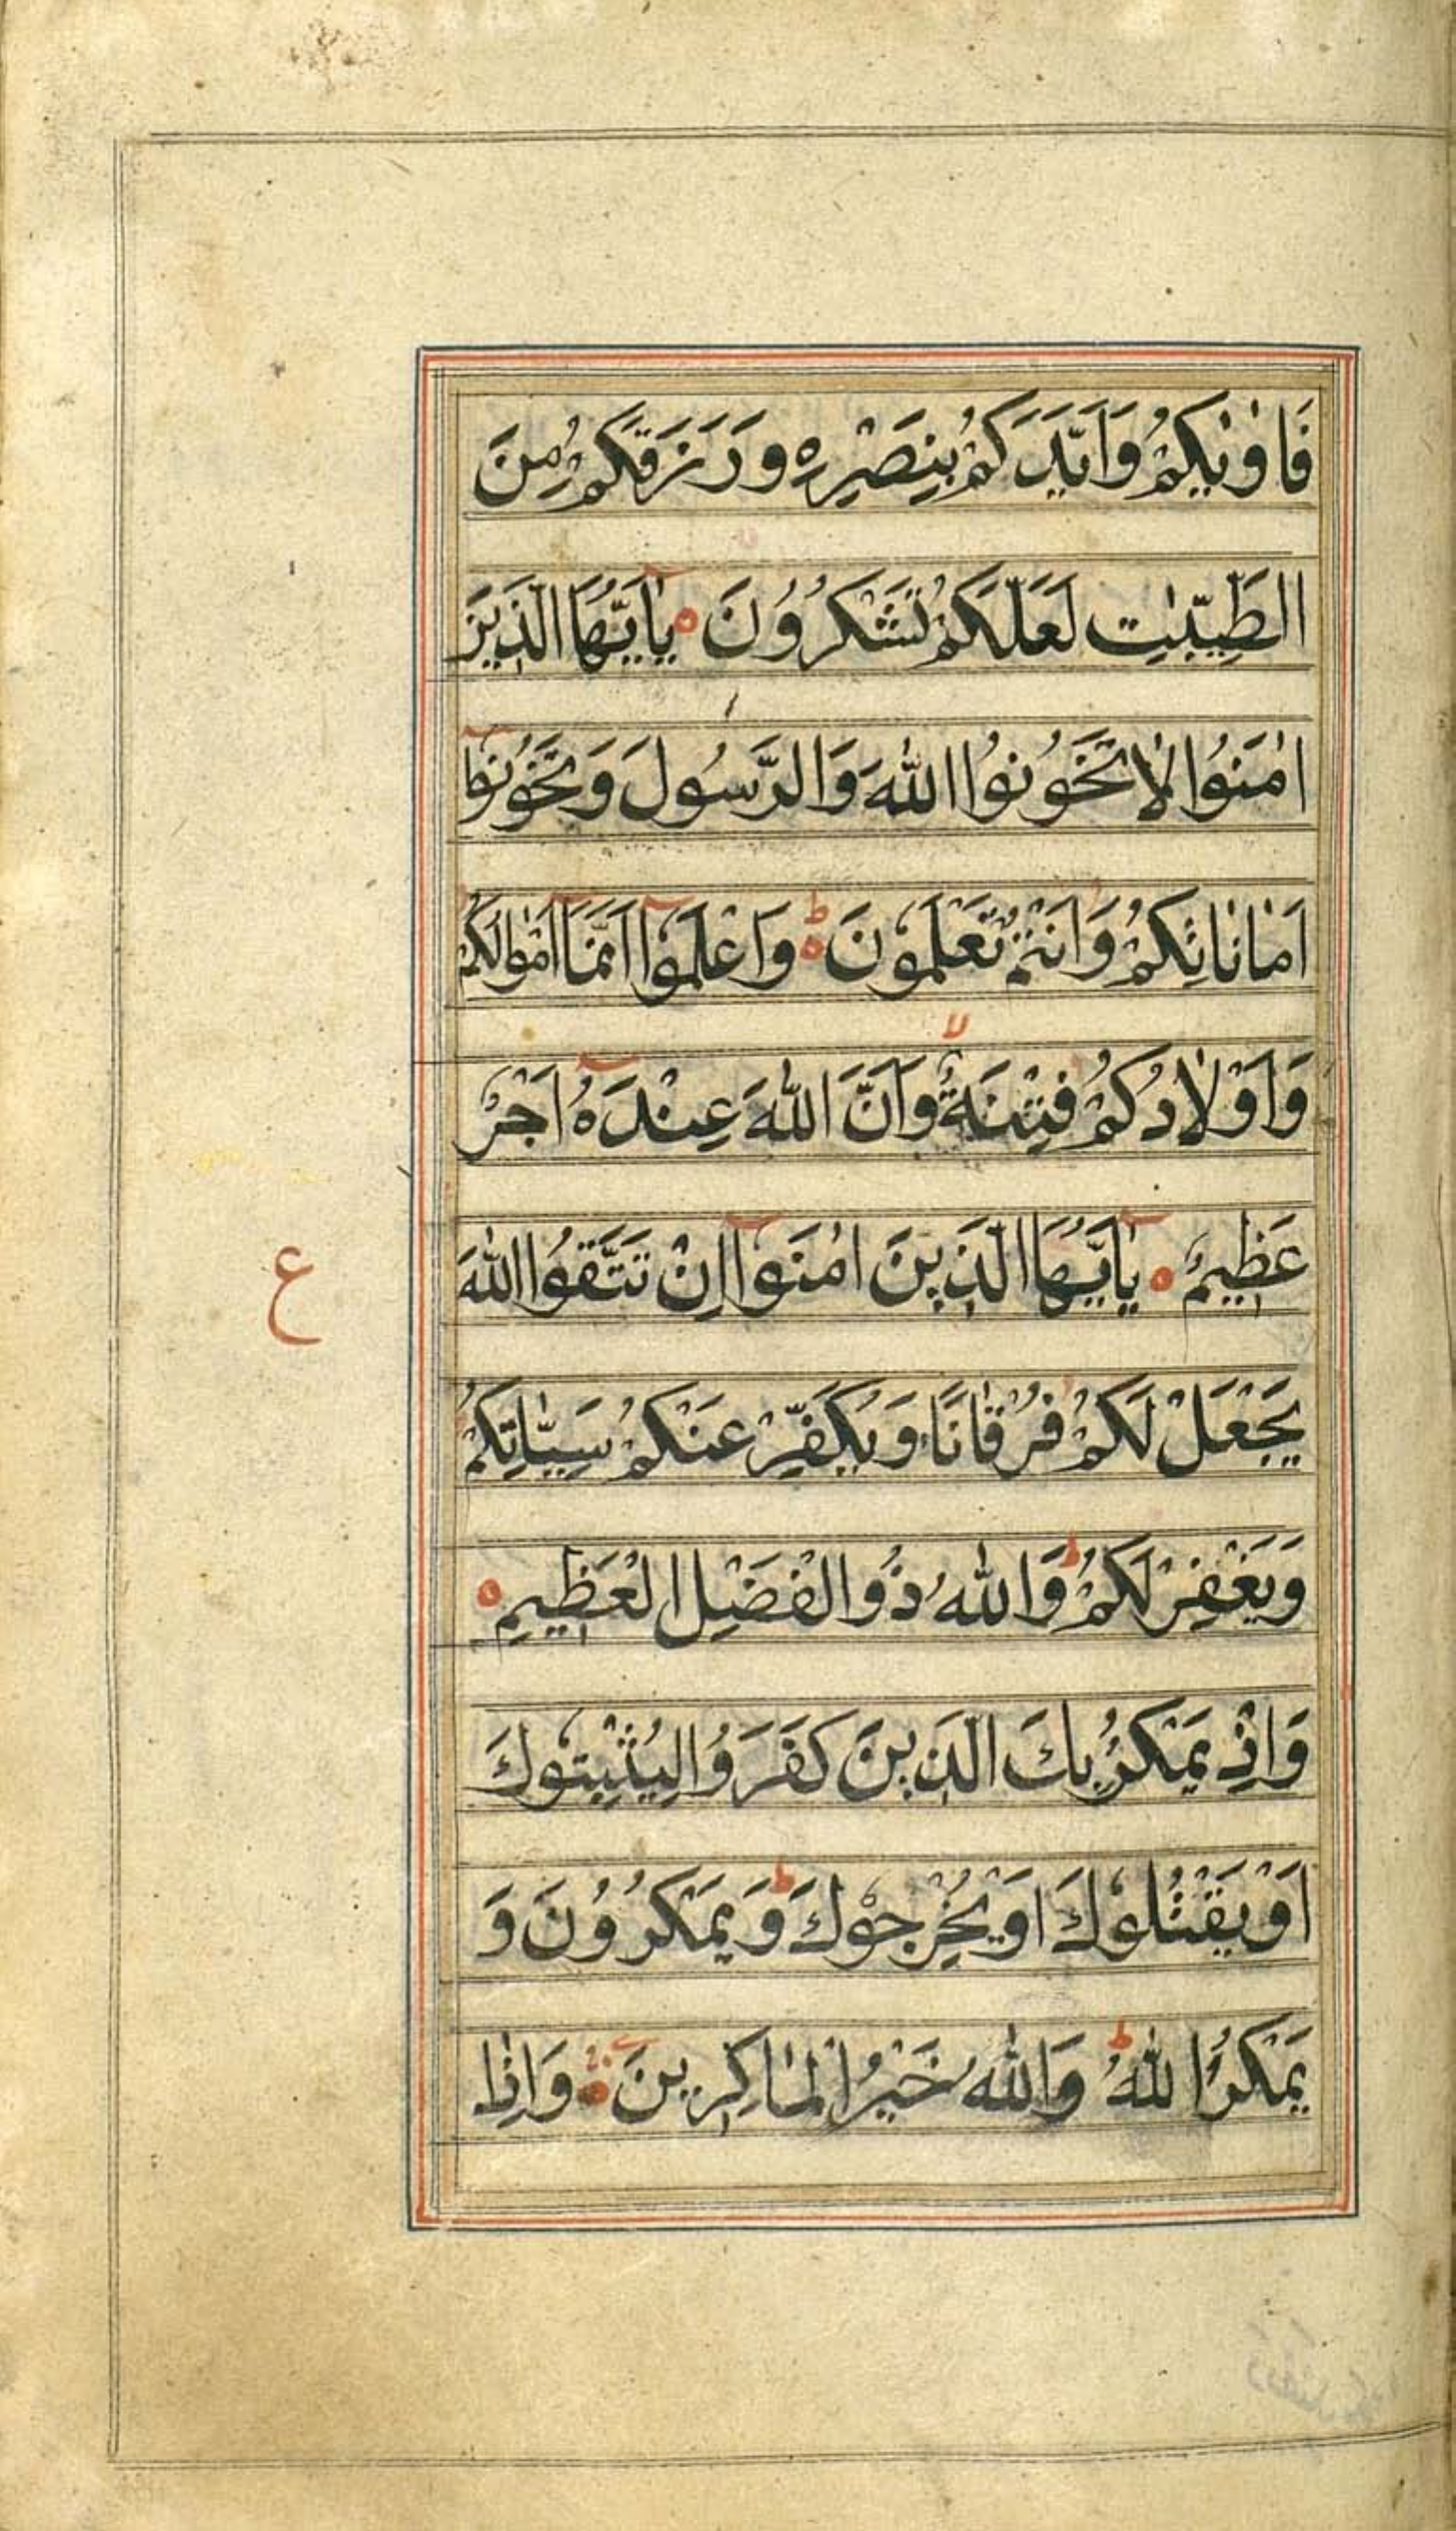 فَاٰوٰىكُمْ وَاَيَّدَكُمْ بِنَصْرِهٖ وَرَزَقَكُمْ مِنَ
الطَّيِّبٰتِ لَعَلَّكُمْ تَشْكُرُوْنَ يٰٓاَيُّهَا الَّذِيْنَ
اٰمَنُوْا لَا تَخُوْنُوا اللّٰهَ وَالرَّسُوْلَ وَتَخُوْنُوْٓا
اَمَانَاتِكُمْ وَاَنْتُمْ تَعْلَمُوْنَ ط وَاعْلَمُوْٓا اَنَّمَآ اَمْوَالُكُمْ
وَاَوْلَادُكُمْ فِتْنَةٌ لا وَاَنَّ اللّٰهَ عِنْدَهٗٓ اَجْرٌ
عَظِيْمٌ يٰٓاَيُّهَا الَّذِيْنَ اٰمَنُوْٓا اِنْ تَتَّقُوا اللّٰهَ
ع
يَجْعَلْ لَكُمْ فُرْقَانًا وَيُكَفِّرْ عَنْكُمْ سَيِّاٰتِكُمْ
وَيَغْفِرْ لَكُمْ ط وَاللّٰهُ ذُو الْفَضْلِ الْعَظِيْمِ
وَاِذْ يَمْكُرُ بِكَ الَّذِيْنَ كَفَرُوْا لِيُثْبِتُوْكَ
اَوْ يَقْتُلُوْكَ اَوْ يُخْرِجُوْكَ ط وَيَمْكُرُوْنَ وَ
يَمْكُرُ اللّٰهُ ط وَاللّٰهُ خَيْرُ الْمَاكِرِيْنَ وَاِذَا